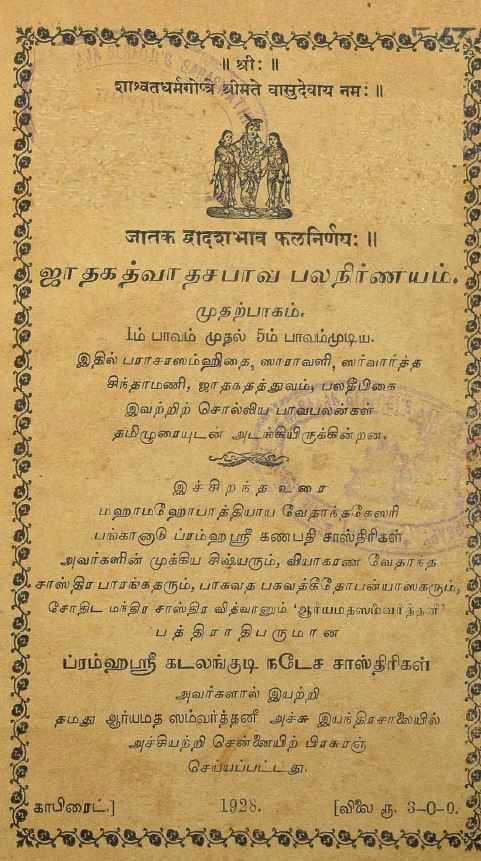 ॥ श्रीः ॥
शाश्वतधर्मगोप्त्रे श्रीमते वासुदेवाय नमः॥
जातक द्वादशभाव फलनिर्णयः॥
ஜாதகத்வாதசபாவ பலநிர்ணயம்.
முதற்பாகம்.
1ம் பாவம் முதல் 5ம் பாவம்முடிய.
இதில் பராசரஸம்ஹிதை, ஸாராவளி, ஸர்வார்த்த
சிந்தாமணி, ஜாதகதத்துவம், பலதீபிகை
இவற்றிற் சொல்லிய பாவபலன்கள்
தமிழுரையுடன் அடங்கியிருக்கின்றன.
இச்சிறந்த உரை
மஹாமஹோபாத்தியாய வேதாந்தகேஸரி
பங்காநாடு ப்ரம்ஹஸ்ரீ கணபதி சாஸ்திரிகள்
அவர்களின் முக்கிய சிஷ்யரும், வியாகரண வேதாந்த
சாஸ்திர பாரங்கதரும், பாகவத பகவத்கீதோபன்யாஸகரும்,
சோதிட மந்திர சாஸ்திர வித்வானும் 'ஆர்யமதஸம்வர்த்தனீ'
பத்திராதிபருமான
ப்ரம்ஹஸ்ரீ கடலங்குடி நடேச சாஸ்திரிகள்
அவர்களால் இயற்றி
தமது ஆர்யமத ஸம்வர்த்தனீ அச்சு இயந்திரசாலையில்
அச்சியற்றி சென்னையிற் பிரசுரஞ்
செய்யப்பட்டது.
காபிரைட்.] 1928. [விலை ரூ. 3-0-0.